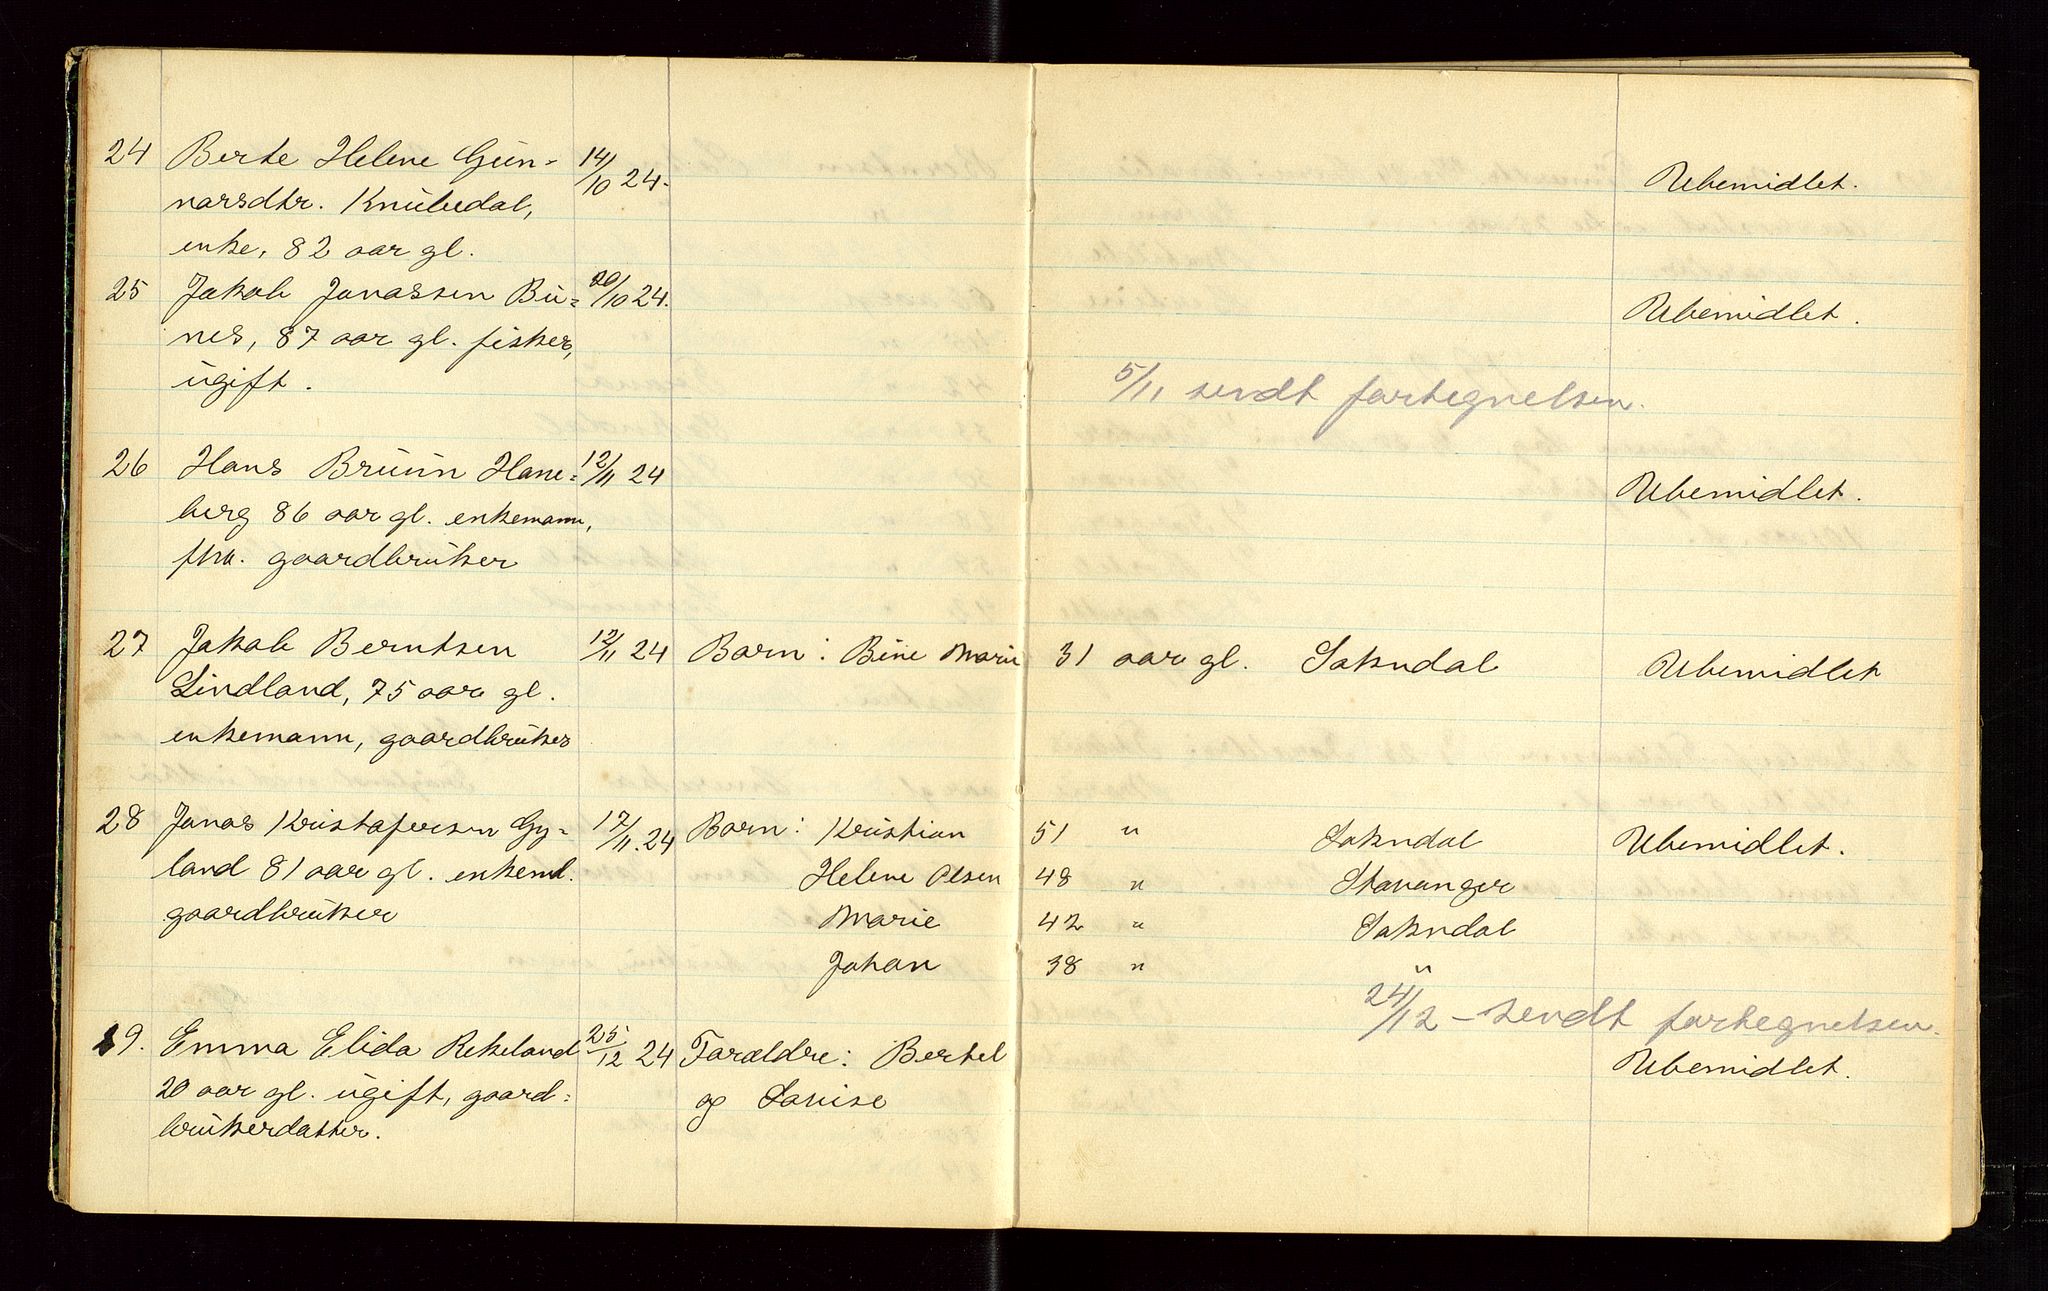 24 Berte Helene Gun- 14/10 24. Ubemidlet.
narsdtr. Knubedal,
enke, 82 aar gl.
25 Jakob Jonassen Bu= 20/10 24. Ubemidlet.
nes, 87 aar gl. fisker,
ugift.
5/11 sendt fortegnelsen.
26 Hans Bruun Hane= 12/11 24 Ubemidlet.
berg 86 aar gl. enkemann,
fhv. gaardbruker
27 Jakob Berntsen 12/11 24 Barn: Bine Marie 31 aar gl. Sokndal Ubemidlet
Lindland, 75 aar gl.
enkemann, gaardbruker
28 Jonas Kristofersen Gy= 17/11. 24 Barn: Kristian 51 " Sokndal Ubemidlet.
land 81 aar gl. enkem. Helene Olsen 48 " Stavanger
gaardbruker Marie 42 " Sokndal
Johan 38 " "
24/12 - sendt fortegnelsen.
29. Emma Elida Rekeland 25/12 24 Forældre: Bertel Ubemidlet.
20 aar gl. ugift, gaard= og Lovise
brukerdatter.